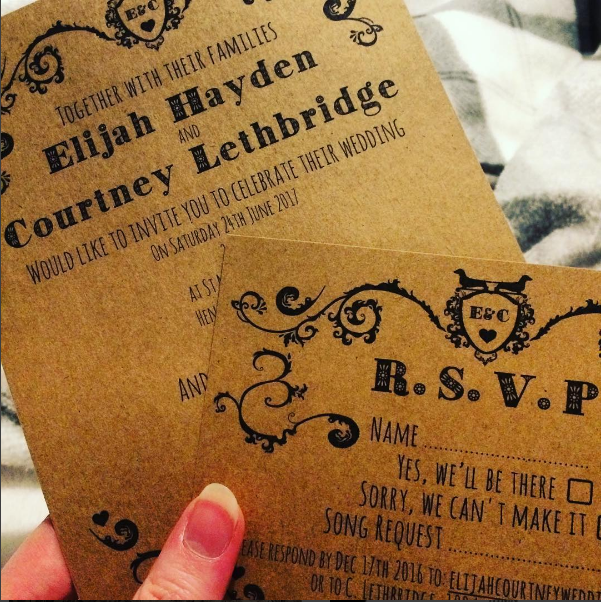 E&C
TOGETHER WITH THEIR FAMILIES
Elijah Hayden
AND
Courtney Lethbridge
WOULD LIKE TO INVITE YOU TO CELEBRATE THEIR WEDDING
ON SATURDAY 24TH JUNE 2017
AT ST
HEN
AND
E&C
R.S.V.P
NAME
YES, WE'LL BE THERE
SORRY, WE CAN'T MAKE IT
SONG REQUEST
EASE RESPOND BY DEC 17TH 2016 TO: ELIJAHCOURTNEYWEDDI
OR TO C. LETHBRIDGE,